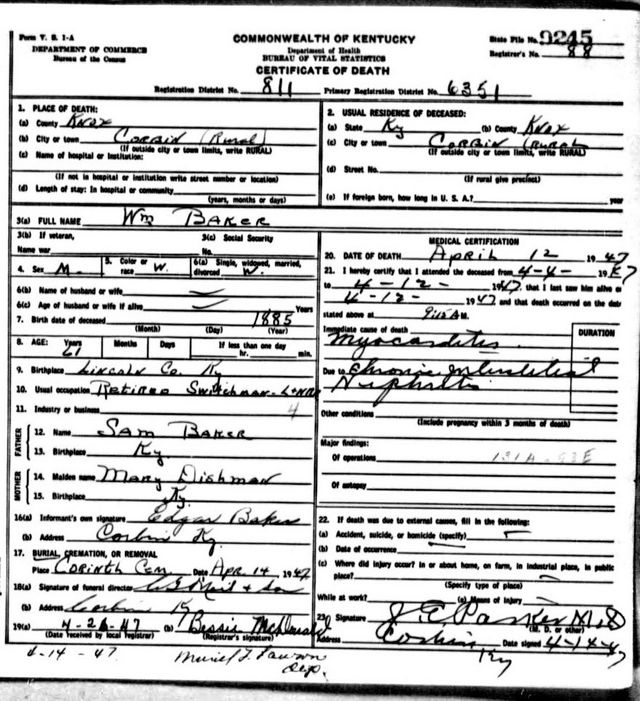 Form V. S. 1-A
DEPARTMENT OF COMMERCE
Bureau of the Census
COMMONWEALTH OF KENTUCKY
Department of Health
BUREAU OF VITAL STATISTICS
CERTIFICATE OF DEATH
State File No. 9245
Registrar's No. 88
Registration District No. 811 Primary Registration District No. 6351
1. PLACE OF DEATH:
(a) County Knox
(b) City or town Corbin (Rural)
(If outside city or town limits, write RURAL)
(c) Name of hospital or institution:
(If not in hospital or institution write street number or location)
(d) Length of stay: In hospital or community
(years, months or days)
2. USUAL RESIDENCE OF DECEASED:
(a) State Ky (b) County Knox
(c) City or town Corbin (Rural
(If outside city or town limits, write RURAL)
(d) Street No.
(If rural give precinct)
(e) If foreign born, how long in U. S. A.? year
3(a) FULL NAME Wm BAKER
3(b) If veteran, 3(c) Social Security
Name war No.
4. Sex M. 5. Color or race W. 6(a) Single, widowed, married, divorced W.
6(b) Name of husband or wife
6(c) Age of husband or wife if alive Years
7. Birth date of deceased 1885
(Month) (Day) (Year)
8. AGE: Years Months Days If less than one day
61 hr. min.
9. Birthplace Lincoln Co. Ky
10. Usual occupation Retired Switchman - L&NRR
11. Industry or business 4
FATHER
12. Name Sam Baker
13. Birthplace Ky.
MOTHER
14. Maiden name Mary Dishman
15. Birthplace Ky
16(a) Informant's own signature Edgar Baker
(b) Address Corbin Ky.
17. BURIAL, CREMATION, OR REMOVAL
Place Corinth Cem. Date Apr. 14 1947
18(a) Signature of funeral director & Son
(b) Address Corbin Ky
19(a) 4-26-47 (b) Bessie
(Date received by local registrar) (Registrar's signature)
4-14-47 Muriel F. Lawson
Dep.
MEDICAL CERTIFICATION
20. DATE OF DEATH April 12 1947
21. I hereby certify that I attended the deceased from 4-4- 19
to 4-12- 1947, that I last saw him alive o
4-12- 1947 and that death occurred on the date
stated above at 9:15 AM.
Immediate cause of death DURATION
Myocarditis
Due to Chronic Interstitial
Nephritis
Other conditions
(Include pregnancy within 3 months of death)
Major findings:
Of operations 131A-93E
Of autopsy
22. If death was due to external causes, fill in the following:
(a) Accident, suicide, or homicide (specify)
(b) Date of occurrence
(c) Where did injury occur? In or about home, on farm, in industrial place, in public
place?
(Specify type of place)
While at work? (e) Means of injury
23. Signature J. E. Parker M.D
(M. D. or other)
Address Corbin Date signed 4-14-47
Ky